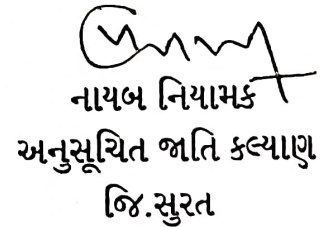 નાયબ નિયામક
અનુસૂચિત જાતિ કલ્યાણ
જિ.સુરત